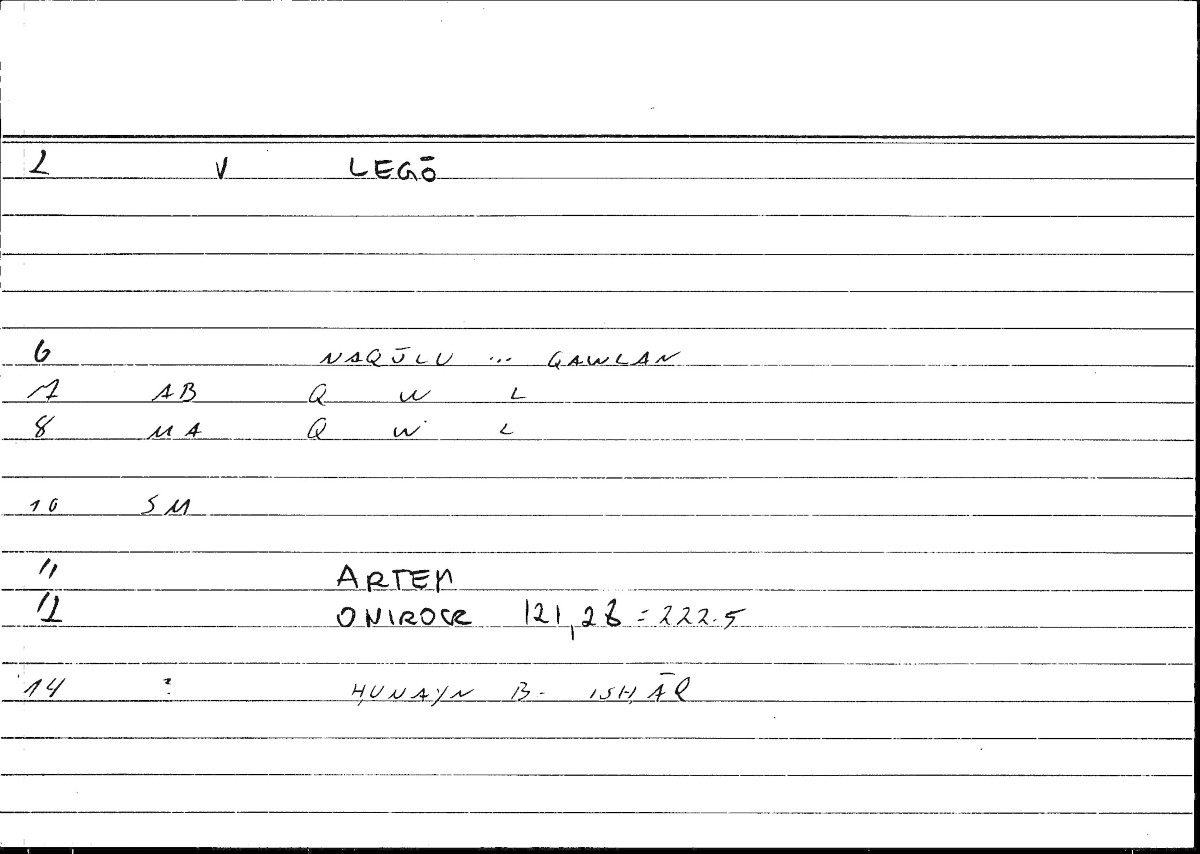 2 V LEGŌ
6 NAQŪLU ... QAWLAN
7 AB Q W L
8 MA Q W L
10 SM
11 ARTEM
12 ONIROCR 121,28 = 222.5
14 : ḤUNAYN B. ISḤĀQ